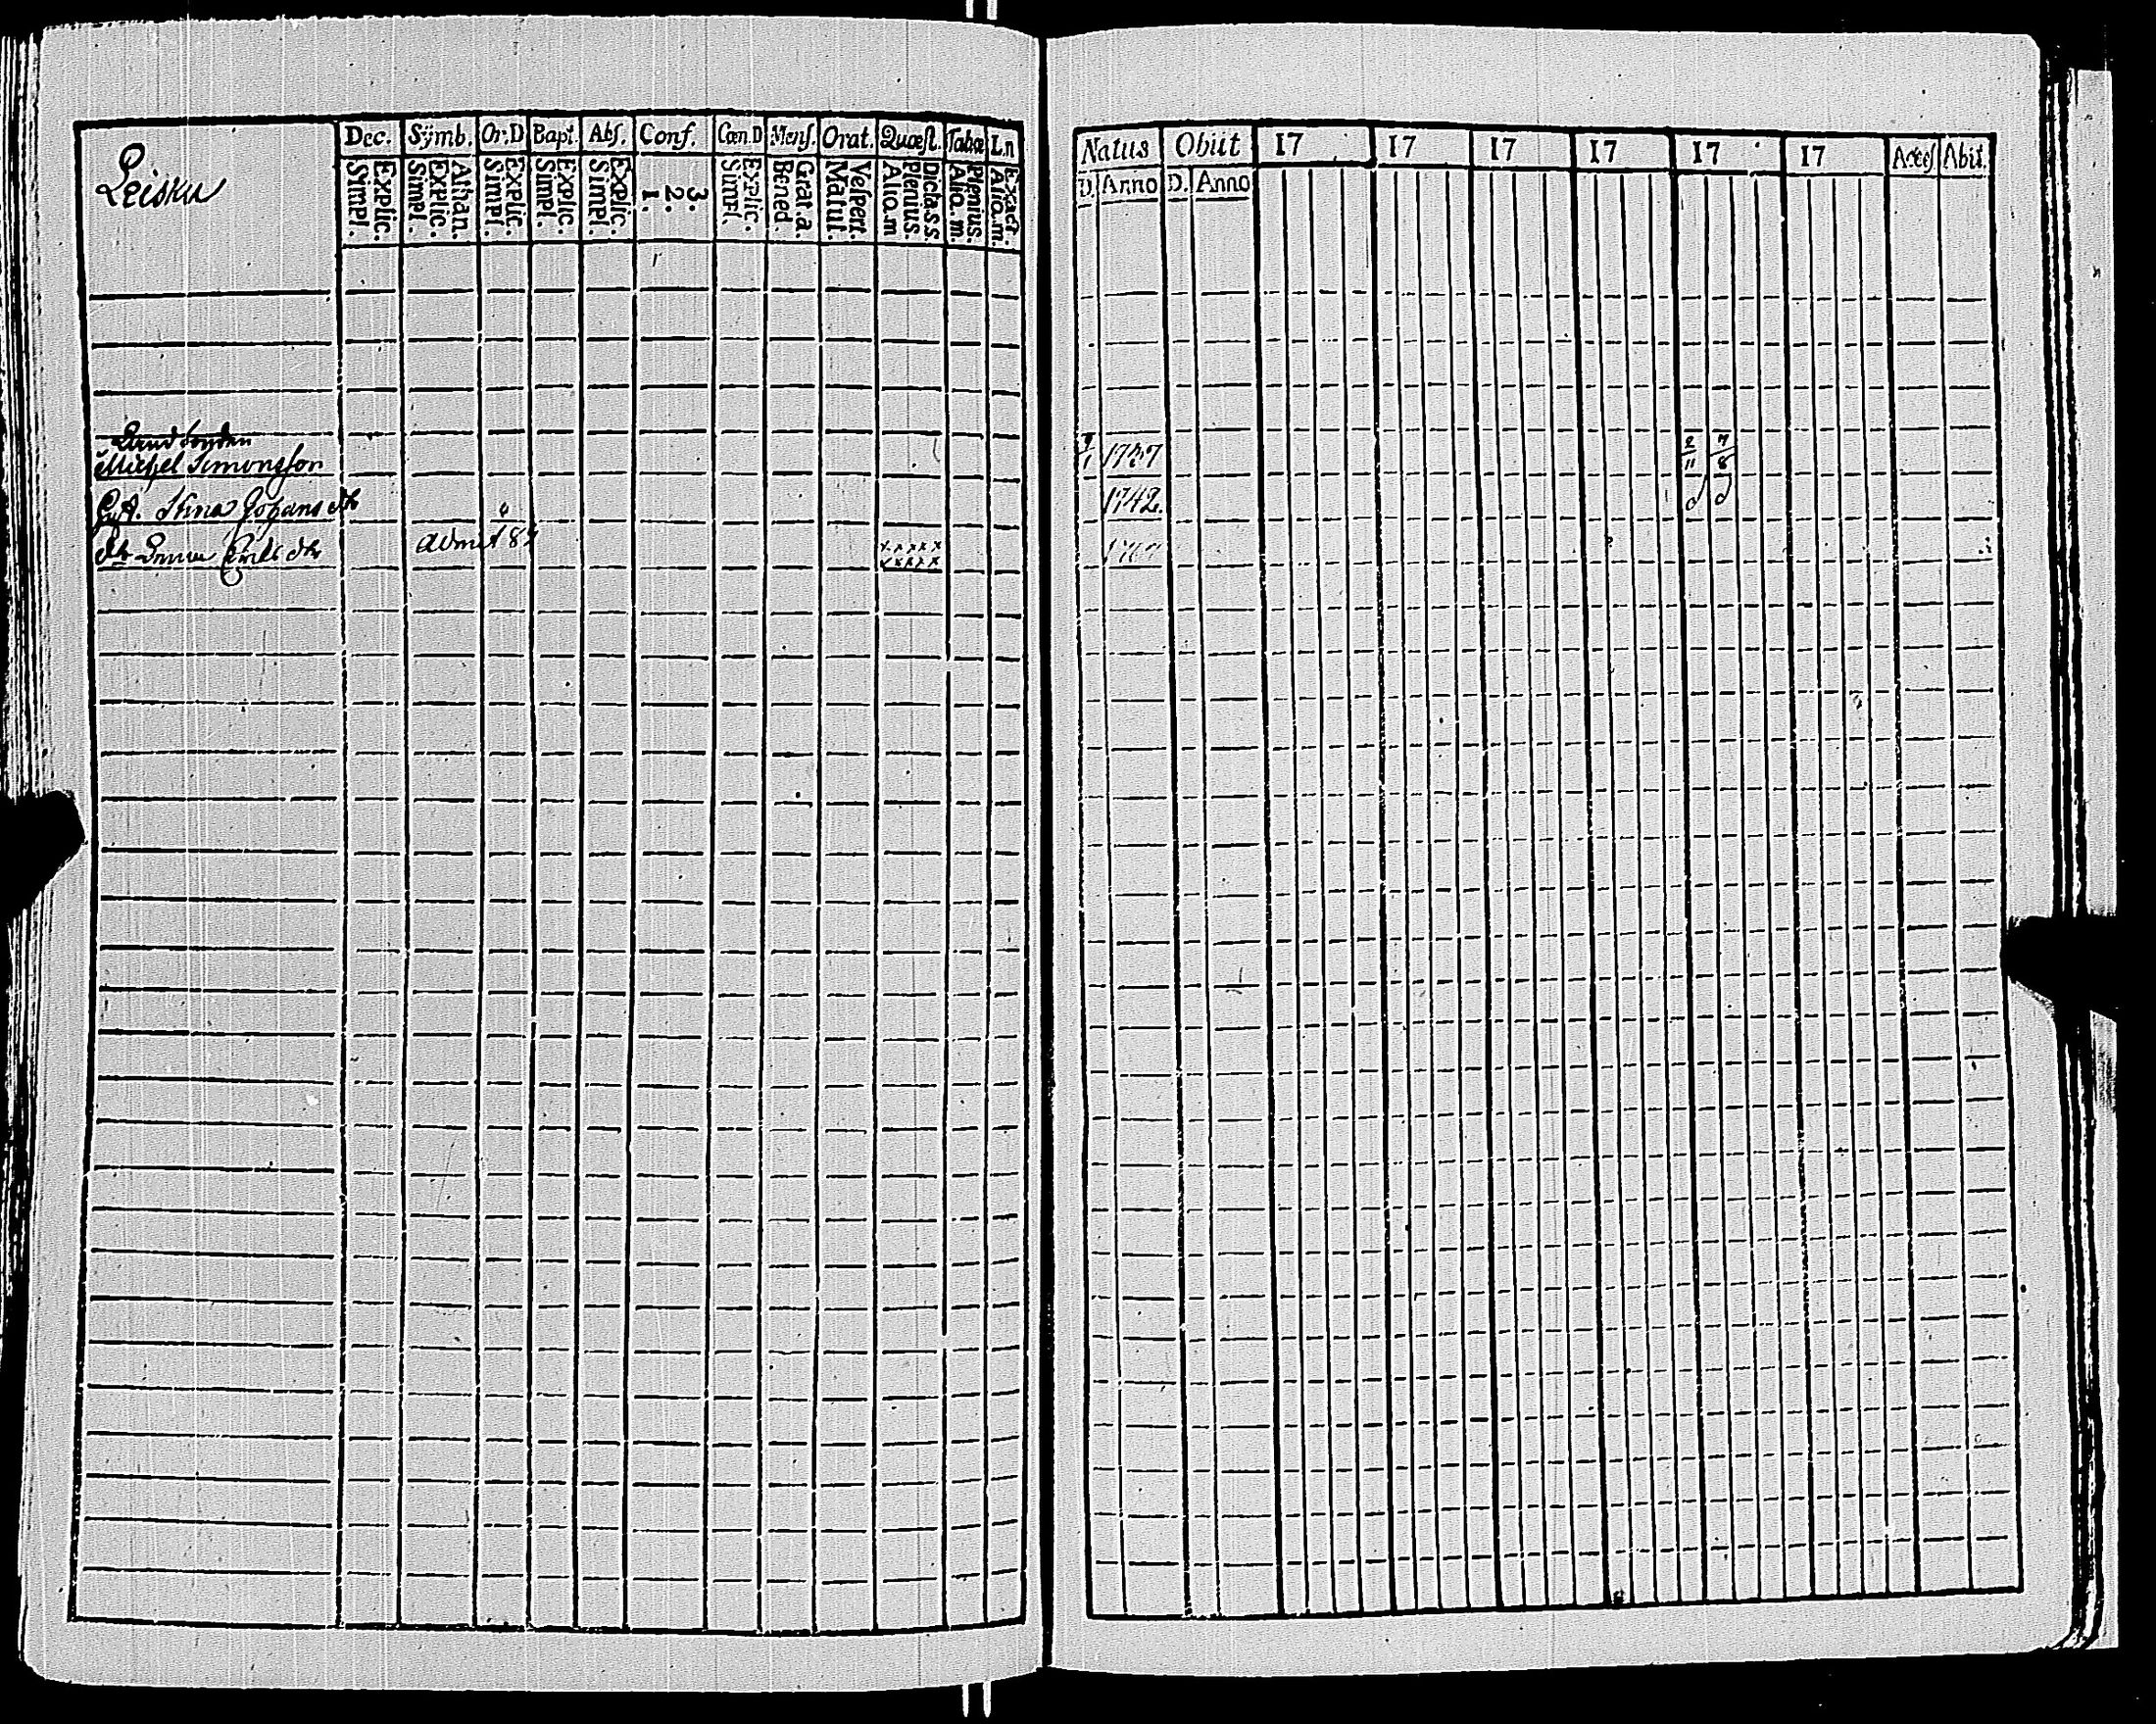 Leisku
Dec. Sÿmb. Or.D Bapt. Abs. Conf. Cœn.D Mens. Orat. Quæst. Tabæ L.n
Explic. Simpl. Athan. Explic. Simpl. Explic. Simpl. Explic. Simpl. Explic. Simpl. 3. 2. 1. Explic. Simpl. Grat.a. Bened. Vespert. Matut. Dicta s.s. Plenius. Alio.m Plenius. Alio.m. Exact. Alio.m.
Michel Simonsson
Stina Johans dtr
admit 8
x x x x x
x x x x x
Natus Obiit 17 17 17 17 17 17 Acces Abiit.
D. Anno D. Anno
17 7 2/11 7/8
1742.